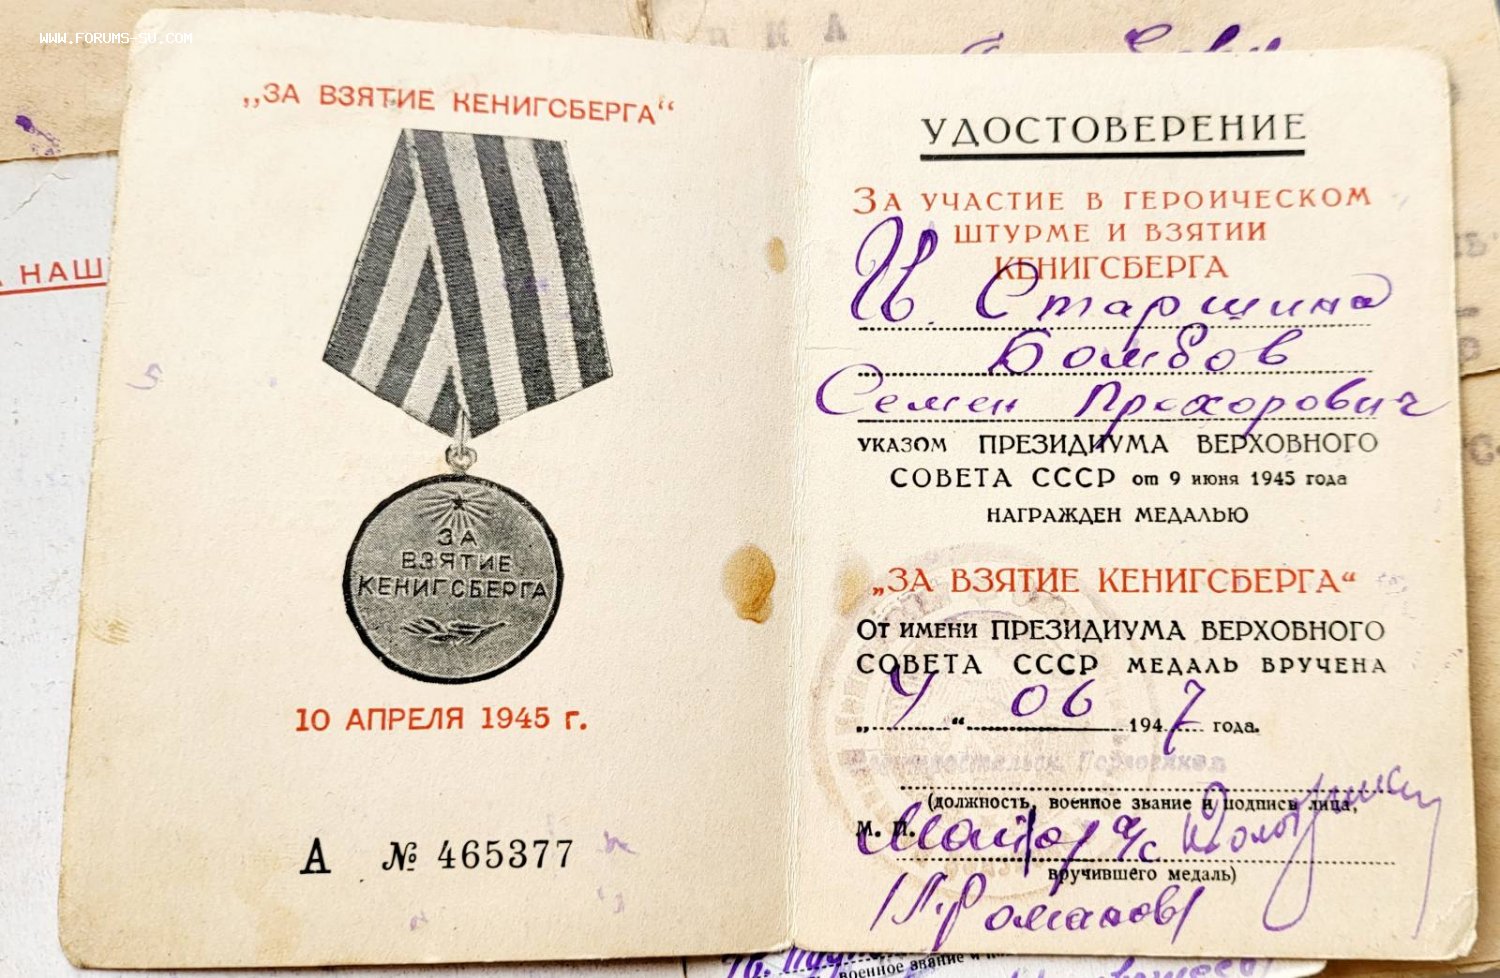 WWW.FORUMS-SU.COM
„ЗА ВЗЯТИЕ КЕНИГСБЕРГА“
ЗА
ВЗЯТИЕ
КЕНИГСБЕРГА
10 АПРЕЛЯ 1945 г.
А № 465377
НАШ
УДОСТОВЕРЕНИЕ
ЗА УЧАСТИЕ В ГЕРОИЧЕСКОМ
ШТУРМЕ И ВЗЯТИИ
КЕНИГСБЕРГА
Старшина
Бомбов
Семен Прохорович
УКАЗОМ ПРЕЗИДИУМА ВЕРХОВНОГО
СОВЕТА СССР от 9 июня 1945 года
НАГРАЖДЕН МЕДАЛЬЮ
„ЗА ВЗЯТИЕ КЕНИГСБЕРГА“
ОТ ИМЕНИ ПРЕЗИДИУМА ВЕРХОВНОГО
СОВЕТА СССР МЕДАЛЬ ВРУЧЕНА
„4“ 06 1947 года.
(должность, военное звание и подпись лица,
М. П. Майор а/с
вручившего медаль)
/Романов/
военное звание и